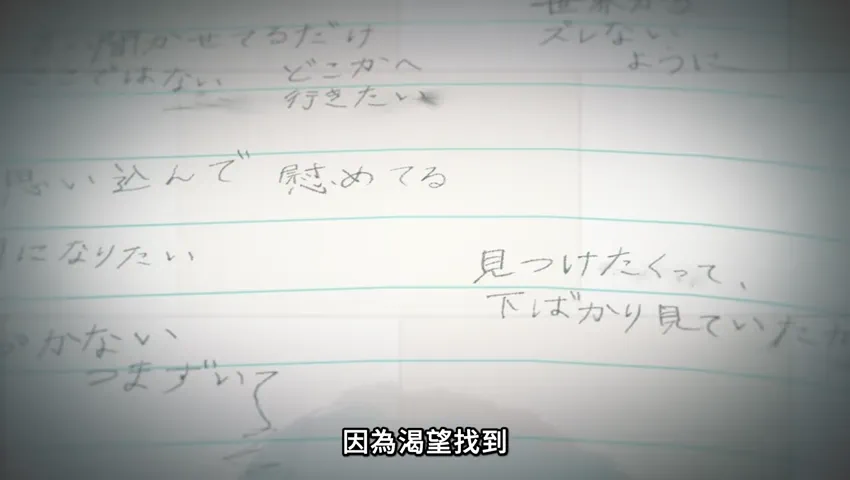 聞かせてるだけ
ここではない どこかへ
行きたい
世界から
ズレない
ように
思い込んで 慰めてる
になりたい
見つけたくって、
下ばかり見ていた
かない
つまずいて
因為渴望找到